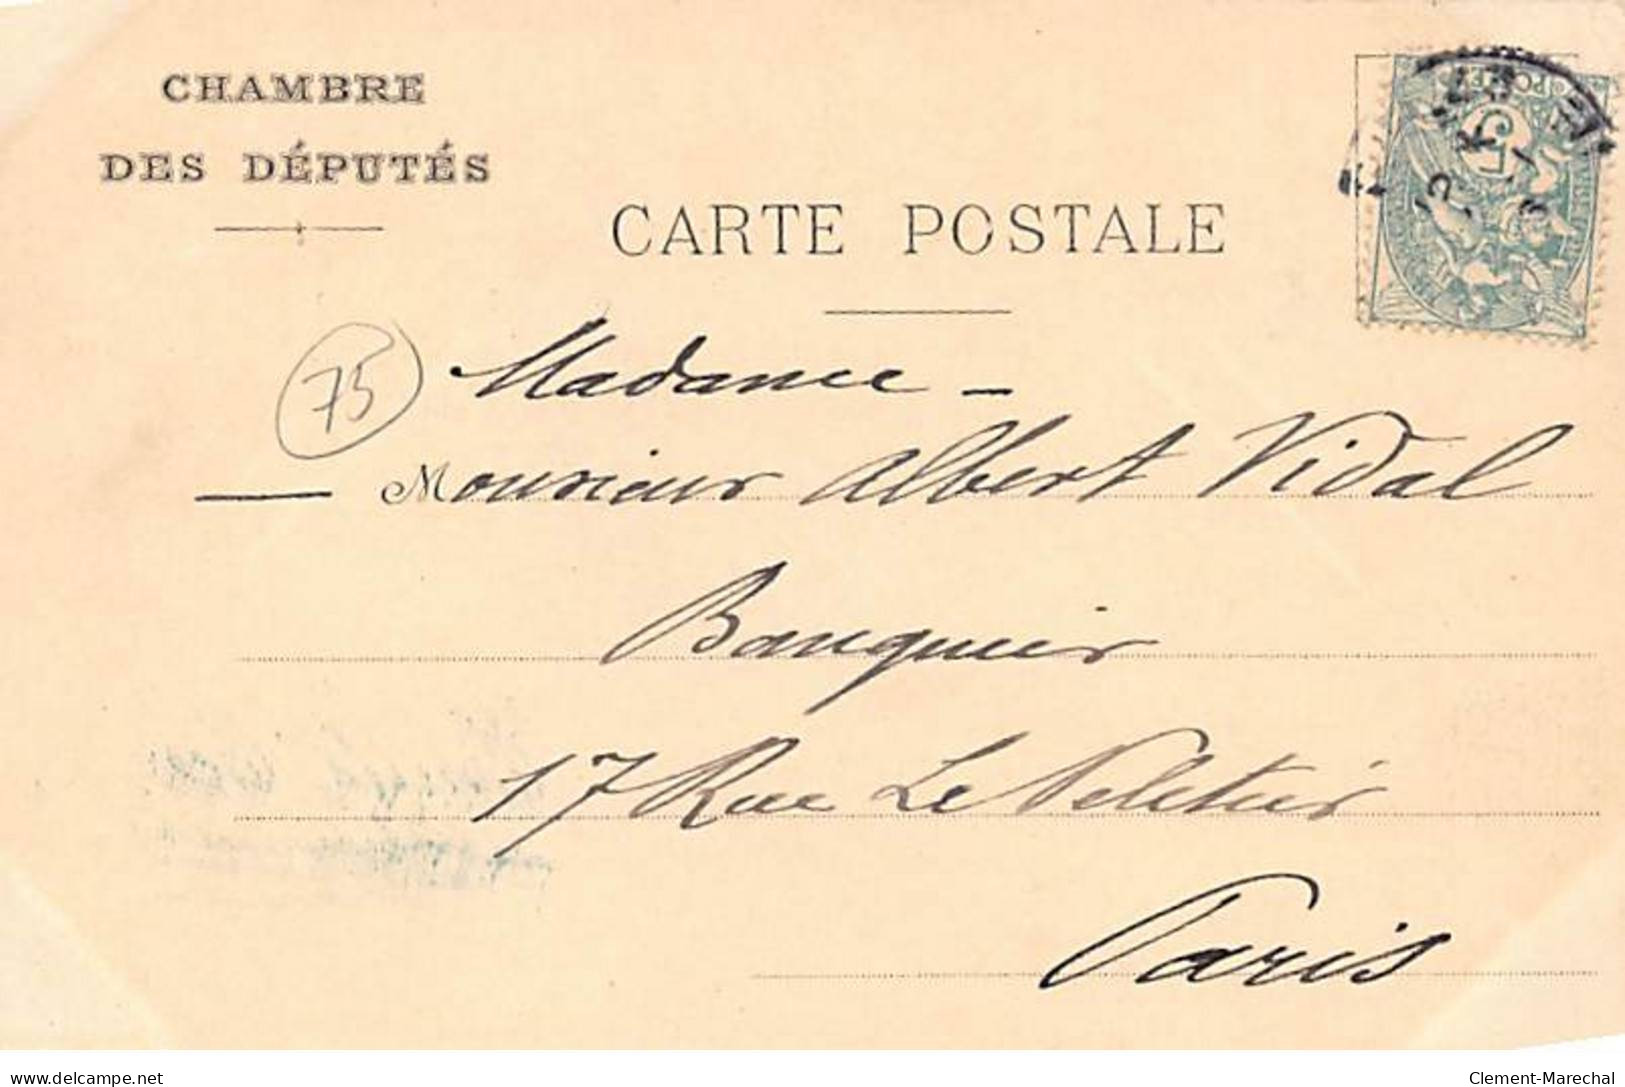 CHAMBRE
DES DÉPUTÉS
CARTE POSTALE
POSTES
5
75
Madame —
— Monsieur Albert Vidal
Banquier
17 Rue Le Peletier
Paris
delcampe.net
Clement-Marechal